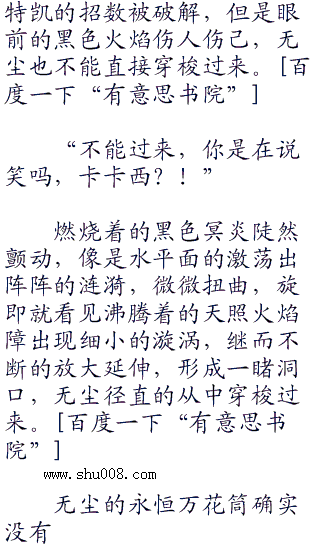 特凯的招数被破解，但是眼
前的黑色火焰伤人伤己，无
尘也不能直接穿梭过来。[百
度一下“有意思书院”]
“不能过来，你是在说
笑吗，卡卡西？！”
燃烧着的黑色冥炎陡然
颤动，像是水平面的激荡出
阵阵的涟漪，微微扭曲，旋
即就看见沸腾着的天照火焰
障出现细小的漩涡，继而不
断的放大延伸，形成一睹洞
口，无尘径直的从中穿梭过
来。[百度一下“有意思书
院”]
www.shu008.com
无尘的永恒万花筒确实
没有